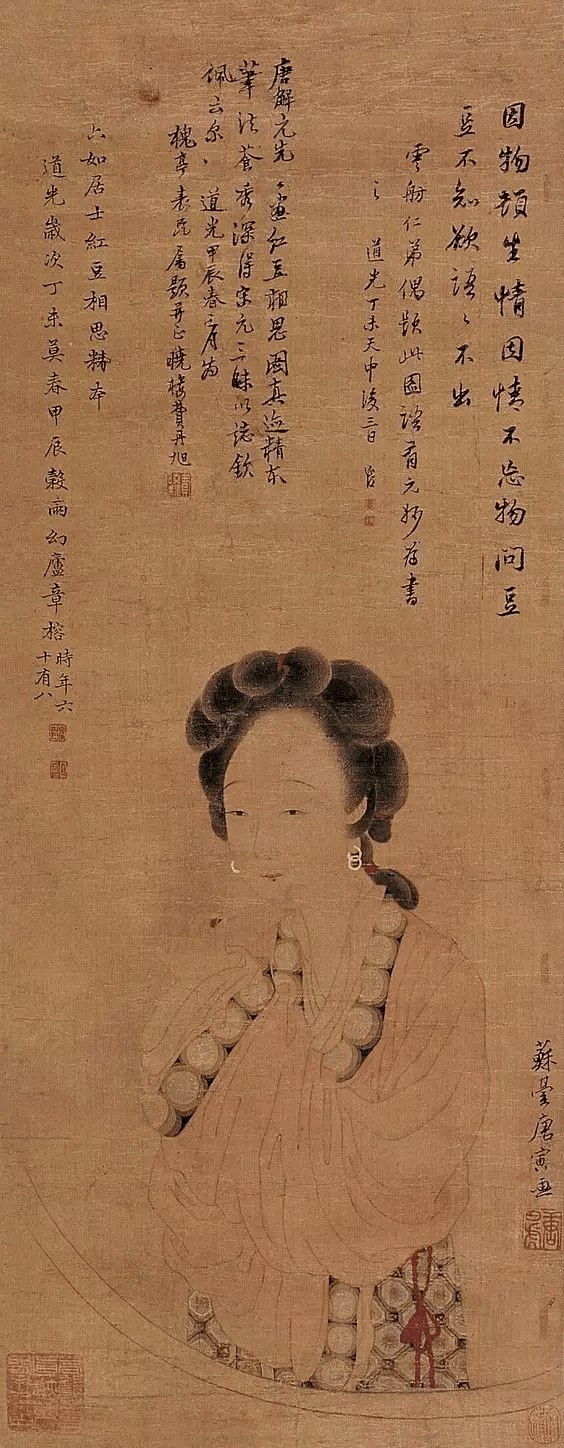 因物頓生情因情不忘物問豆
豆不知欲語語不出
雲舫仁弟偶題此圖諮有元妙為書
之 道光丁未天中後三日
唐解元先生畫紅豆相思圖真迹精本
筆法蒼秀深得宋元三昧以誌欽
佩云爾 道光甲辰春二月為
槐亭表兄屬題并正曉樓費丹旭
六如居士紅豆相思精本
道光歲次丁未莫春甲辰穀雨幻廬章榕
時年六
十有八
蘇臺唐寅畫